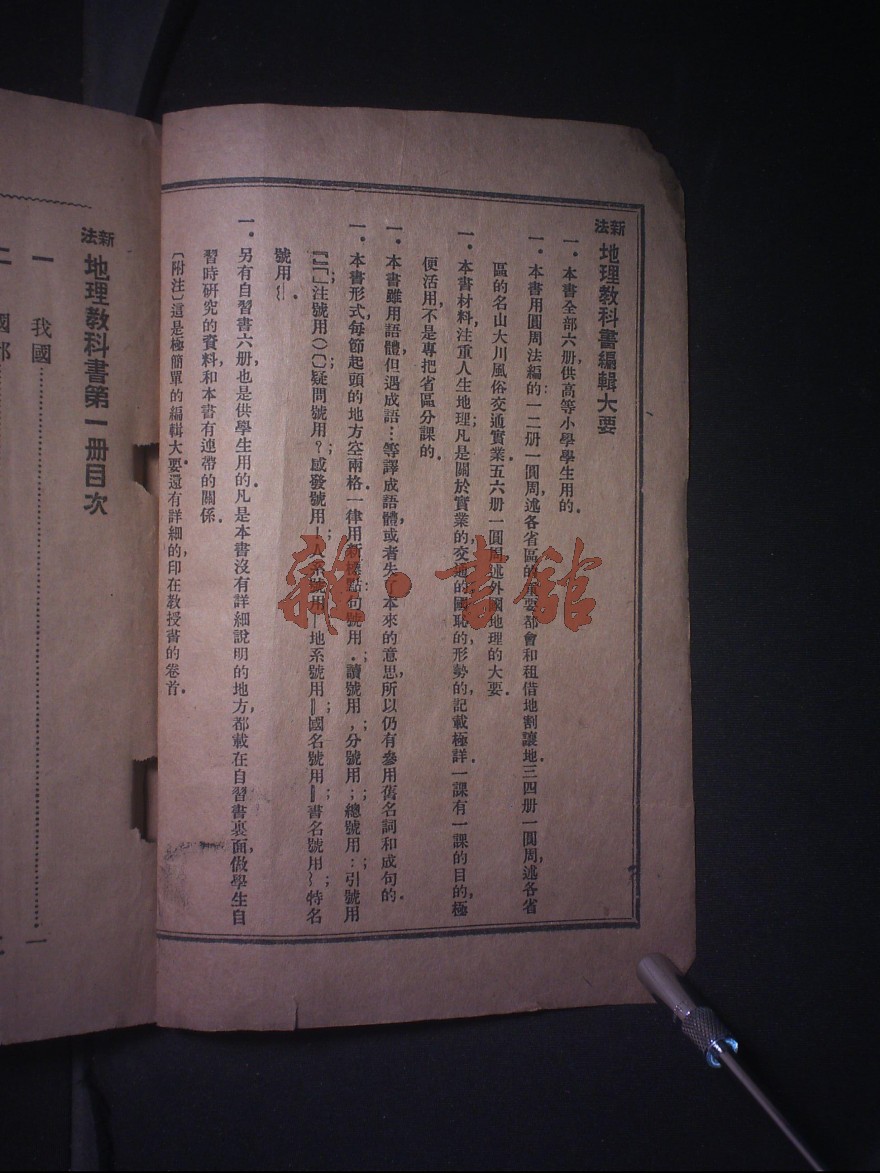 新法地理教科書編輯大要
一. 本書全部六册,供高等小學學生用的.
一. 本書用圓周法編的:一二册一圓周,述各省區的重要都會和租借地割讓地;三四册一圓周,述各省
區的名山大川風俗交通實業;五六册一圓周,述外國地理的大要.
一. 本書材料,注重人生地理;凡是關於實業的,交通的,國恥的,形勢的,記載極詳.一課有一課的目的,極
便活用,不是專把省區分課的.
一. 本書雖用語體,但遇成語…等譯成語體,或者失了本來的意思,所以仍有參用舊名詞和成句的.
一. 本書形式,每節起頭的地方空兩格,一律用新標點:句號用.讀號用,分號用;總號用:引號用
『』「」注號用()〔〕疑問號用?感發號用!人系號用—地系號用‖國名號用‖書名號用﹏特名
號用﹏.
一. 另有自習書六册,也是供學生用的.凡是本書沒有詳細說明的地方,都載在自習書裏面,做學生自
習時研究的資料,和本書有連帶的關係.
〔附注〕這是極簡單的編輯大要,還有詳細的,印在教授書的卷首.
新法地理教科書第一册目次
一 我國……一
二
雜·書館